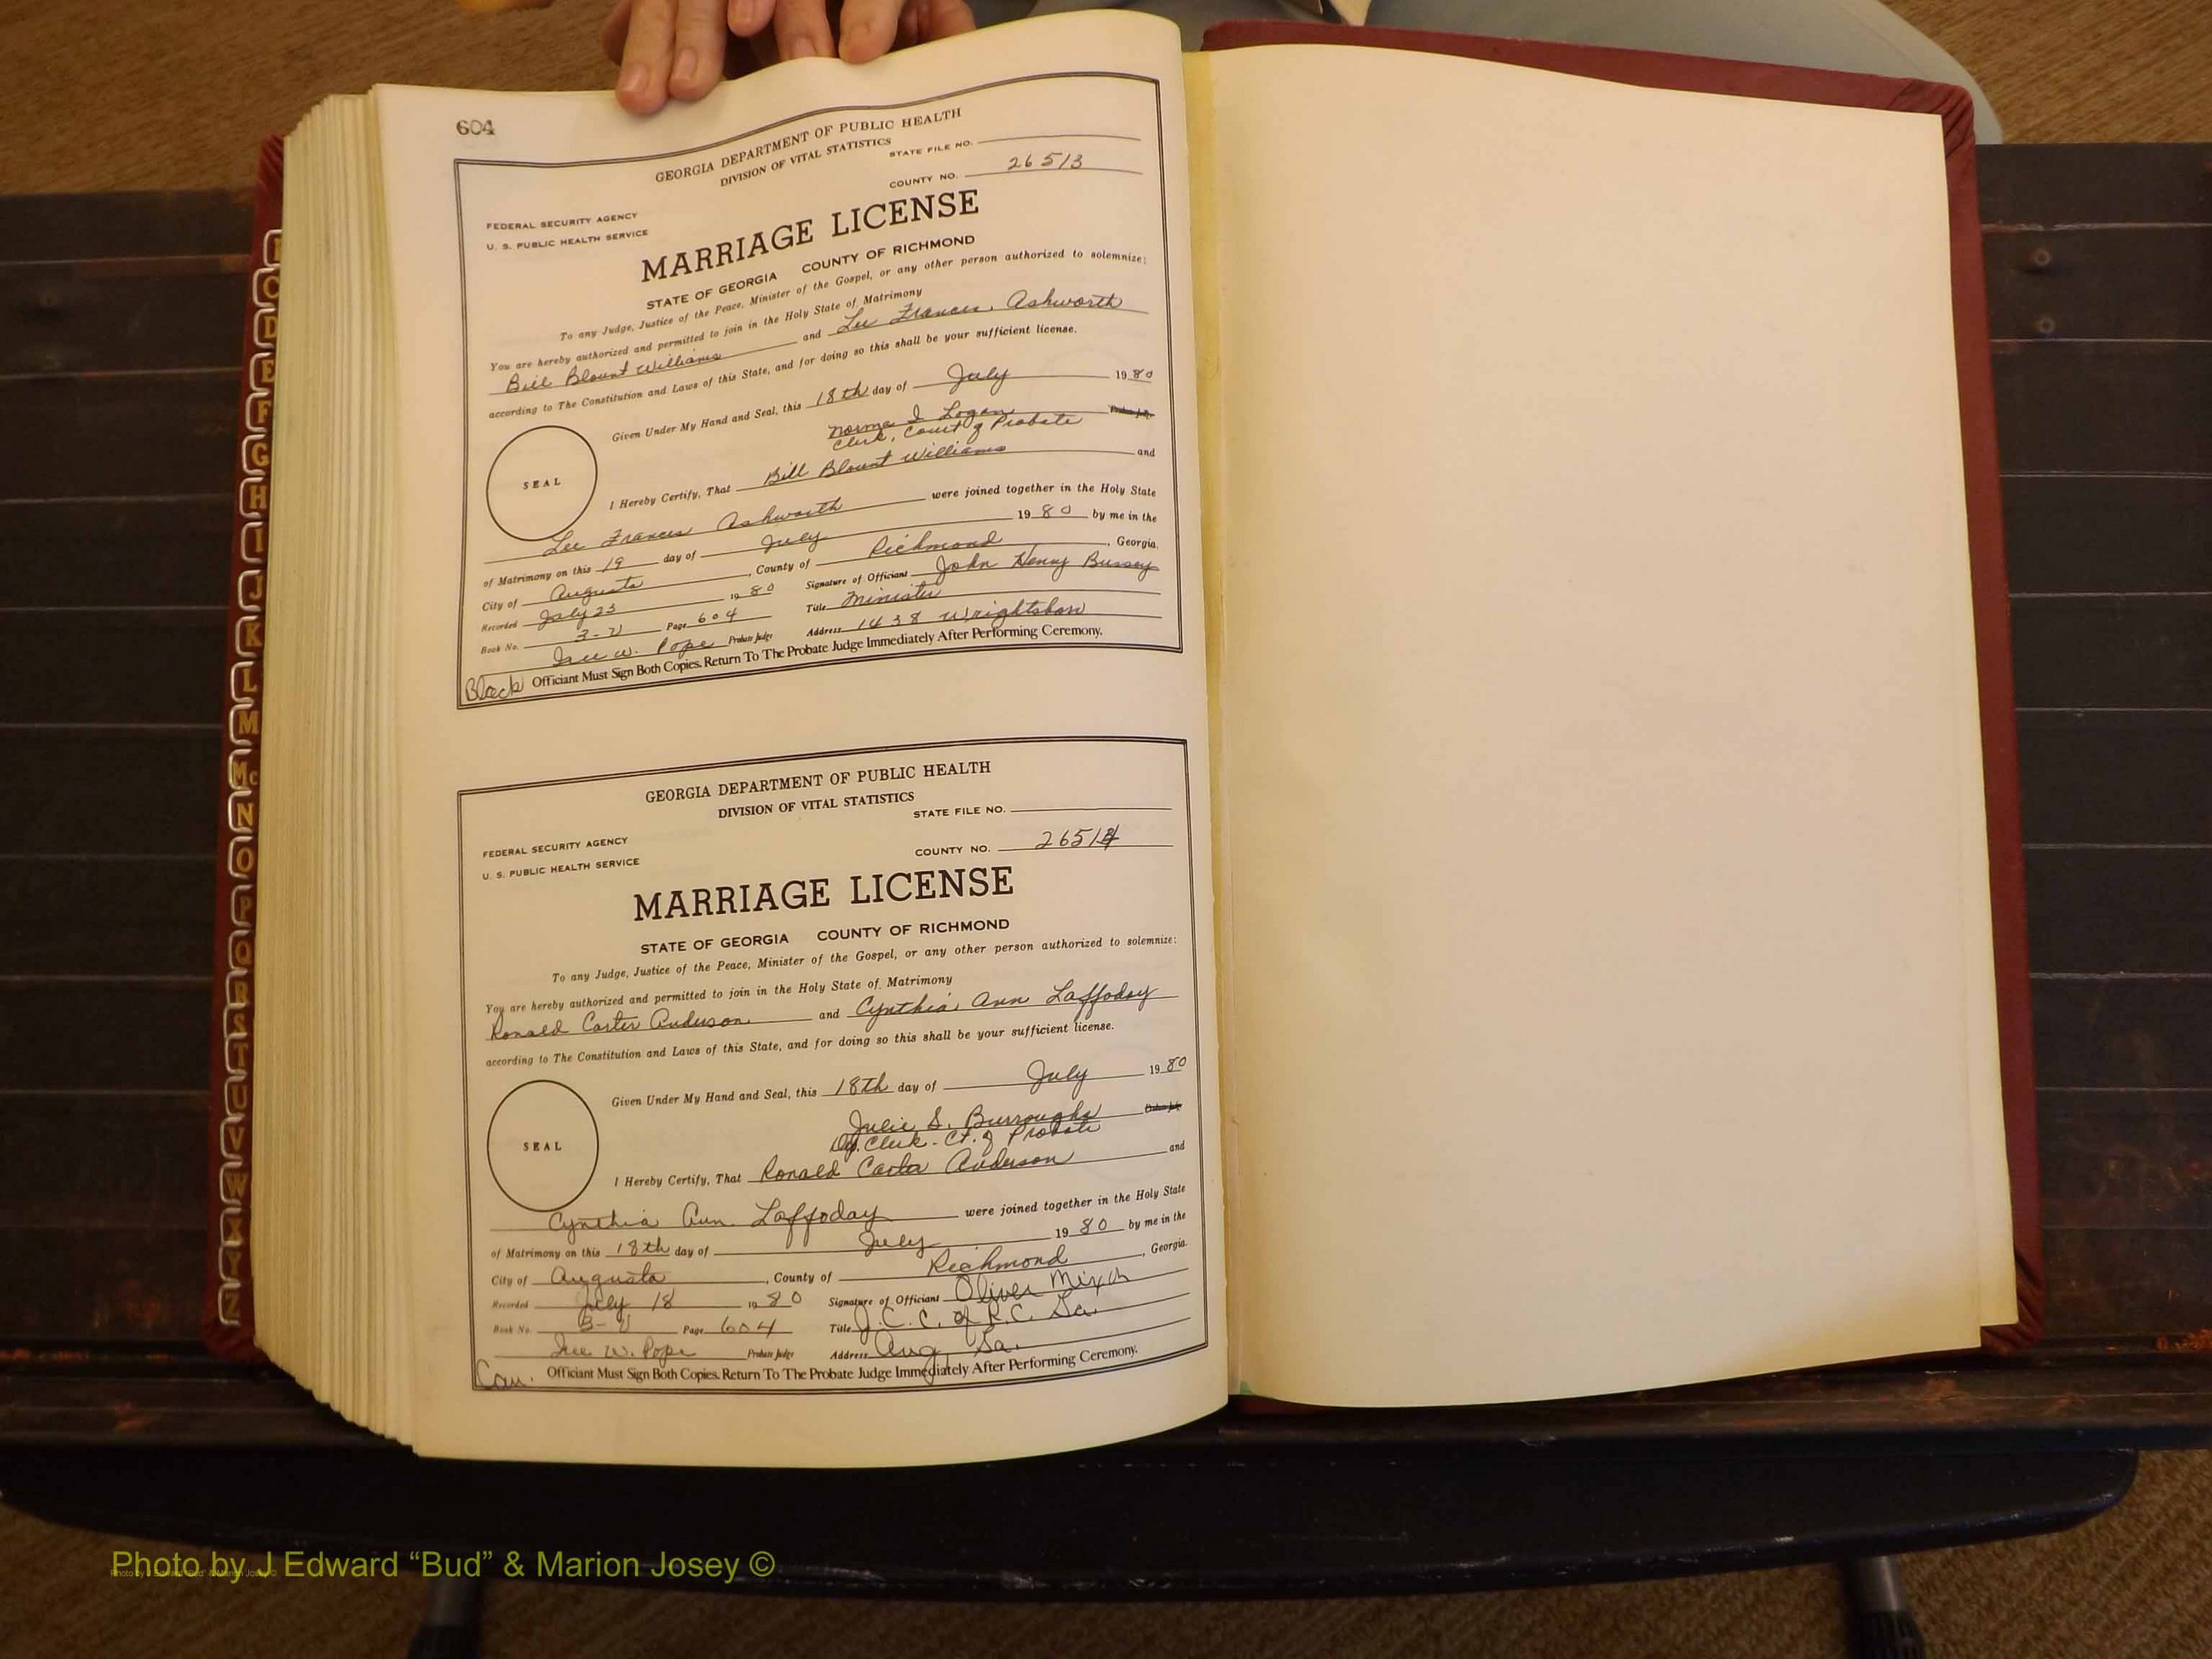 604
GEORGIA DEPARTMENT OF PUBLIC HEALTH
DIVISION OF VITAL STATISTICS
STATE FILE NO.
COUNTY NO. 26513
FEDERAL SECURITY AGENCY
U. S. PUBLIC HEALTH SERVICE
MARRIAGE LICENSE
STATE OF GEORGIA COUNTY OF RICHMOND
To any Judge, Justice of the Peace, Minister of the Gospel, or any other person authorized to solemnize:
You are hereby authorized and permitted to join in the Holy State of Matrimony
Bill Blount Williams and Lee Frances Ashworth
according to The Constitution and Laws of this State, and for doing so this shall be your sufficient license.
Given Under My Hand and Seal, this 18th day of July 1980
Norma I Logan
Clerk, Court of Probate
SEAL
I Hereby Certify, That Bill Blount Williams and
Lee Frances Ashworth were joined together in the Holy State
of Matrimony on this 19 day of July 1980 by me in the
City of Augusta, County of Richmond, Georgia.
Recorded July 23 1980 Signature of Officiant John Henry Bussey
Book No. 3-U Page 604 Title Minister
W. Pope Probate Judge Address 1438 Wrightsboro
Black Officiant Must Sign Both Copies. Return To The Probate Judge Immediately After Performing Ceremony.
GEORGIA DEPARTMENT OF PUBLIC HEALTH
DIVISION OF VITAL STATISTICS
STATE FILE NO.
COUNTY NO. 26514
FEDERAL SECURITY AGENCY
U. S. PUBLIC HEALTH SERVICE
MARRIAGE LICENSE
STATE OF GEORGIA COUNTY OF RICHMOND
To any Judge, Justice of the Peace, Minister of the Gospel, or any other person authorized to solemnize:
You are hereby authorized and permitted to join in the Holy State of Matrimony
Ronald Carter Anderson and Cynthia Ann Laffoday
according to The Constitution and Laws of this State, and for doing so this shall be your sufficient license.
Given Under My Hand and Seal, this 18th day of July 1980
Julie S. Burroughs
Dep. Clerk - Ct. of Probate
SEAL
I Hereby Certify, That Ronald Carter Anderson and
Cynthia Ann Laffoday were joined together in the Holy State
of Matrimony on this 18th day of July 1980 by me in the
City of Augusta, County of Richmond, Georgia.
Recorded July 18 1980 Signature of Officiant Oliver
Book No. 3-U Page 604 Title J. C. C. of R.C. Ga.
W. Pope Probate Judge Address Aug Ga.
Cau. Officiant Must Sign Both Copies. Return To The Probate Judge Immediately After Performing Ceremony.
C
D
E
F
G
H
I
J
K
L
M
Mc
N
O
P
Q
R
S
T
U
V
W
X
Y
Z
Photo by J Edward “Bud” & Marion Josey ©